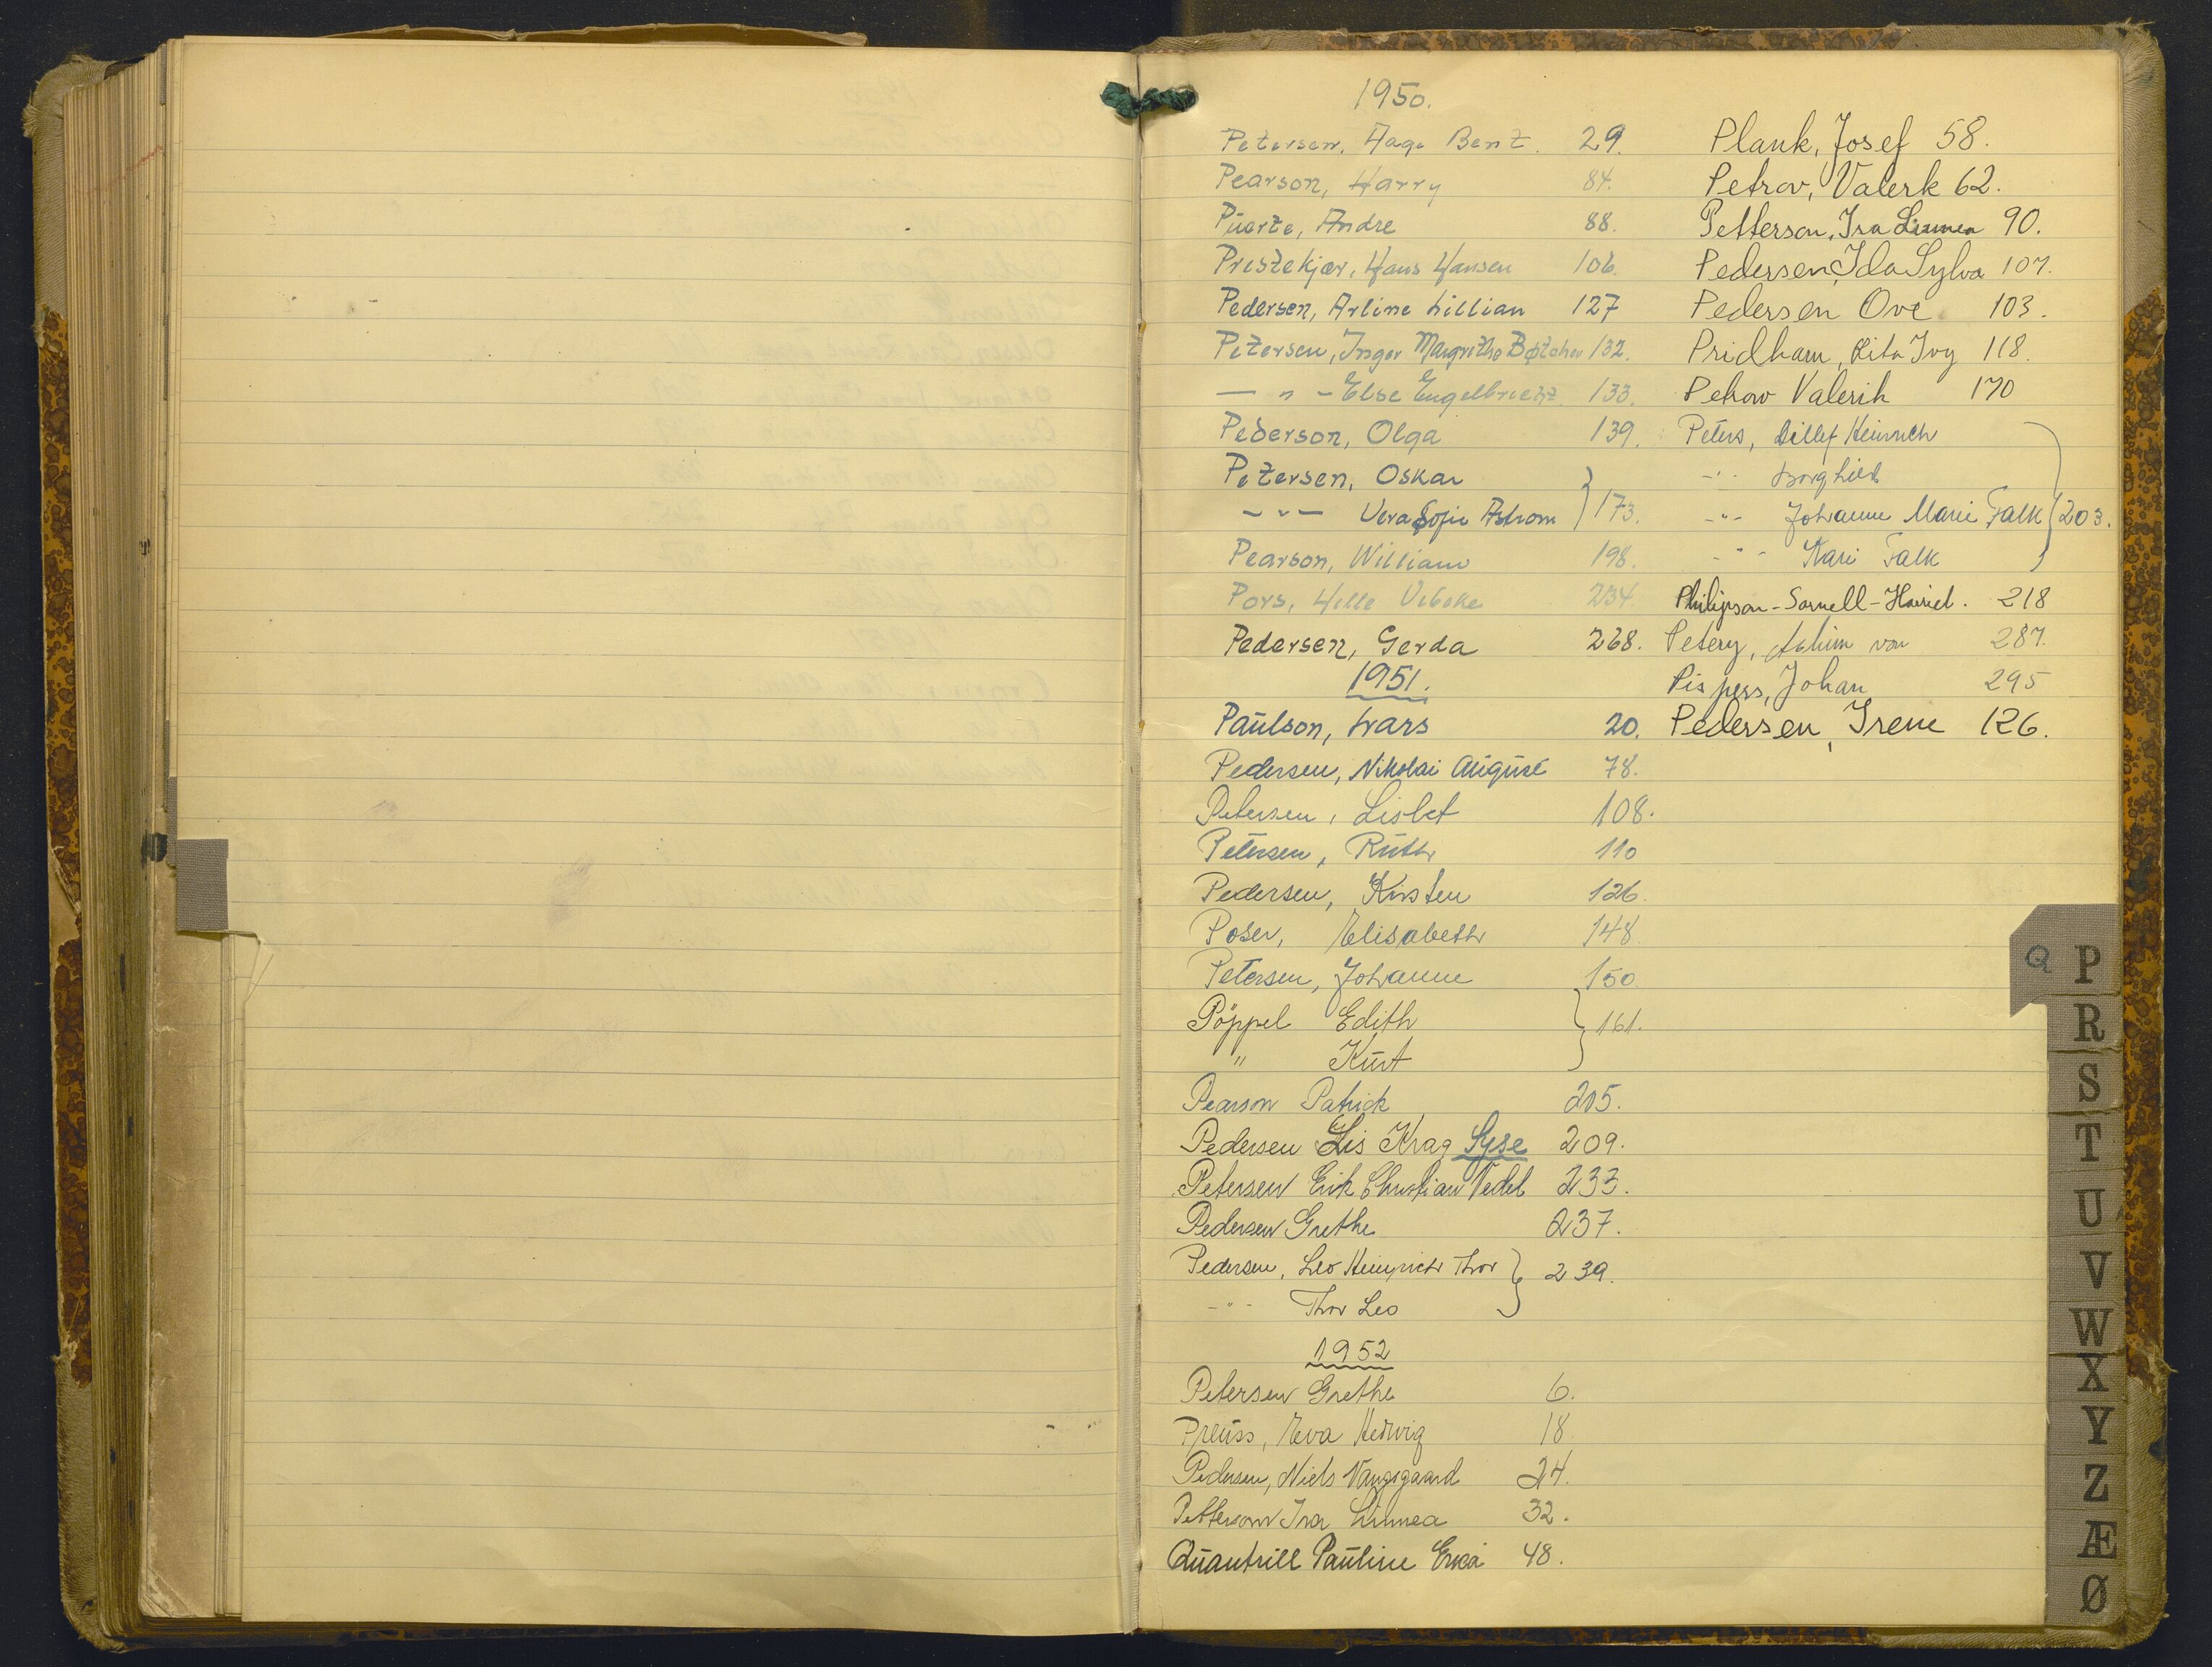 1950.
Petersen, Aage Bent. 29.
Pearson, Harry 84.
Püarte, Andre 88.
Prestekjær, Hans Hansen 106.
Pedersen, Arline Lillian 127
Petersen, Inger Margrethe Bøtcher 132.
— " — Else Engelbrecht 133.
Pederson, Olga 139.
Petersen, Oskar
— " — Vera Sofie Astrom } 173.
Pearson, William 198.
Pors, Helle Vibeke 234.
Pedersen, Gerda 268.
1951.
Paulson, Lars 20.
Pedersen, Nikolai August 78.
Petersen, Lisbet 108.
Petersen, Ruth 110
Pedersen, Kirsten 126.
Poser, Elisabeth 148.
Petersen, Johanne 150.
Pöppel Edith } 161.
" Kurt
Pearson Patrick 205.
Pedersen Lis Krag Syse 209.
Petersen Erik Christian Vedel 233.
Pedersen Grethe 237.
Pedersen, Leo Heinrich Thor } 239.
- " - Thor Leo
1952
Petersen Grethe 6.
Preuss, Eva Hedwig 18.
Pedersen, Niels Vangsgaard 24.
Petterson Ira Linnea 32.
Quantrill Pauline Erica 48.
Plank, Josef 58.
Petrov, Valerk 62.
Petterson, Ira Linnea 90.
Pedersen, Ida Sylva 107.
Pedersen Ove 103.
Pridham, Rita Ivy 118.
Petrow Valerik 170
Peters, Detlef Heinrich
- " - Borghild
- " - Johanne Marie Falk } 203.
- " - Kari Falk
Philipson-Sarnell- 218
Petery, Achim von 287.
Pispers, Johan 295
Pedersen, Irene 126.
Q P
R
S
T
U
V
W
X
Y
Z
Æ
Ø